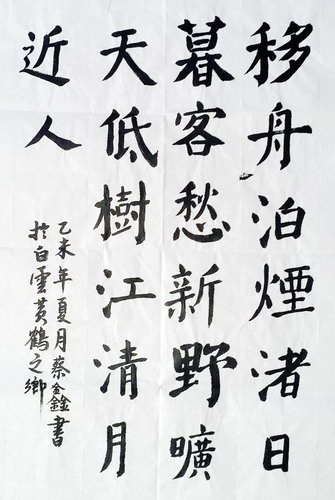 移舟泊煙渚日
暮客愁新野曠
天低樹江清月
近人
乙未年夏月蔡金鋒書
於白雲黃鶴之鄉